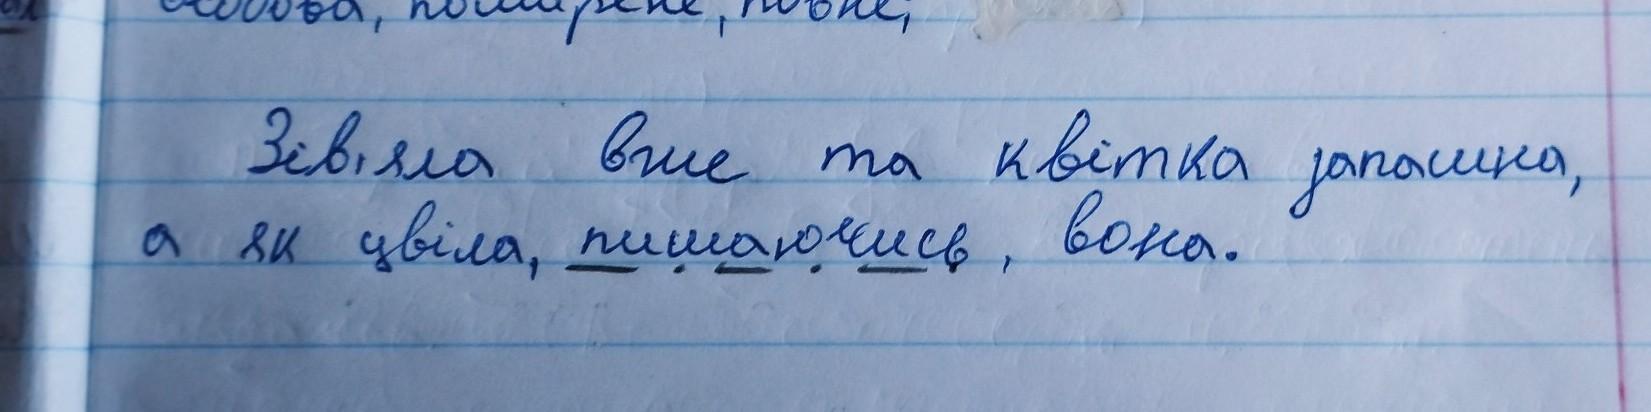 особова, поширене, повне,
Зів'яла вже та квітка запашна,
а як цвіла, пишаючись, вона.